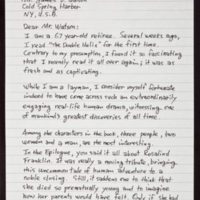 Cold Spring Harbor
NY, U.S.A.
Dear Mr. Watson:
I am a 67 year-old retiree. Several weeks ago,
I read "The Double Helix" for the first time.
Contrary to my presumption, I found it so fascinating
that I merely read it all over again; it was as
fresh and as captivating.
While I am a layman, I consider myself fortunate
indeed to have come across such an extraordinarily
engaging real-life human drama, witnessing one
of mankind's greatest discoveries of all time.
Among the characters in the book, three people, two
women and a man, are the most interesting.
In the Epilogue, you said it all about Rosalind
Franklin. It was really a moving tribute, bringing
this uncommon tale of human adventure to a
noble closing. Still, it saddens one to think that
she died so prematurely young and to imagine
how her parents would have felt. Only if she had